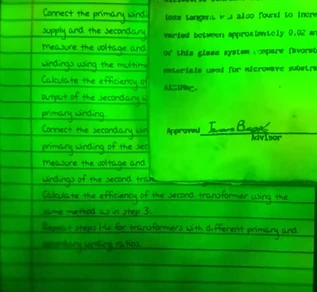 Connect the primary windi
supply and the secondary
measure the voltage and
windings using the multim
Calculate the efficiency of
output of the secondary w
primary winding.
Connect the secondary win
primary winding of the sec
measure the voltage and
windings of the second tran
Calculate the efficiency of the second transformer using the
same method as in step 3.
Repeat steps for transformers with different primary and
secondary winding ratios.
loss tangent was also found to incre
varied between approximately 0.02 an
of this glass system compare favorab
materials used for microwave substra
Approved
Advisor